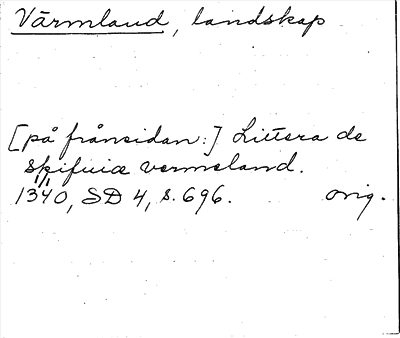 Värmland, landskap
[på frånsidan:] Littera de
skifuiæ vermeland.
1340, SD 4, s. 696. orig.